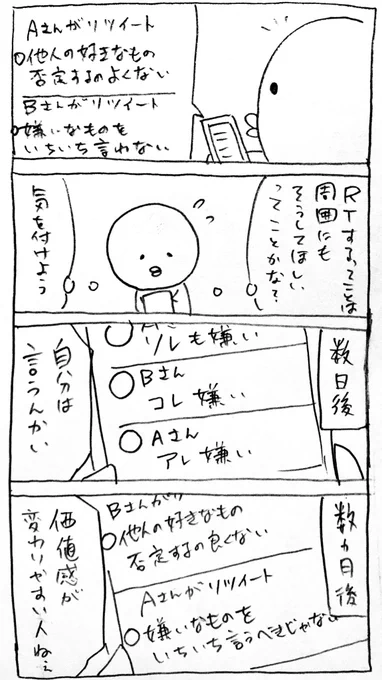 Aさんがリツイート
他人の好きなもの
否定するのよくない
Bさんがリツイート
嫌いなものを
いちいち言わない
RTするってことは
周囲にも
そうしてほしい
ってことかな?
気を付けよう
数日後
ソレも嫌い
Bさん
コレ嫌い
Aさん
アレ嫌い
自分は
言うんかい
数ヵ月後
Bさんがリ
他人の好きなもの
否定するの良くない
Aさんがリツイート
嫌いなものを
いちいち言うべきじゃない
価値感が
変わりやすい人ねぇ